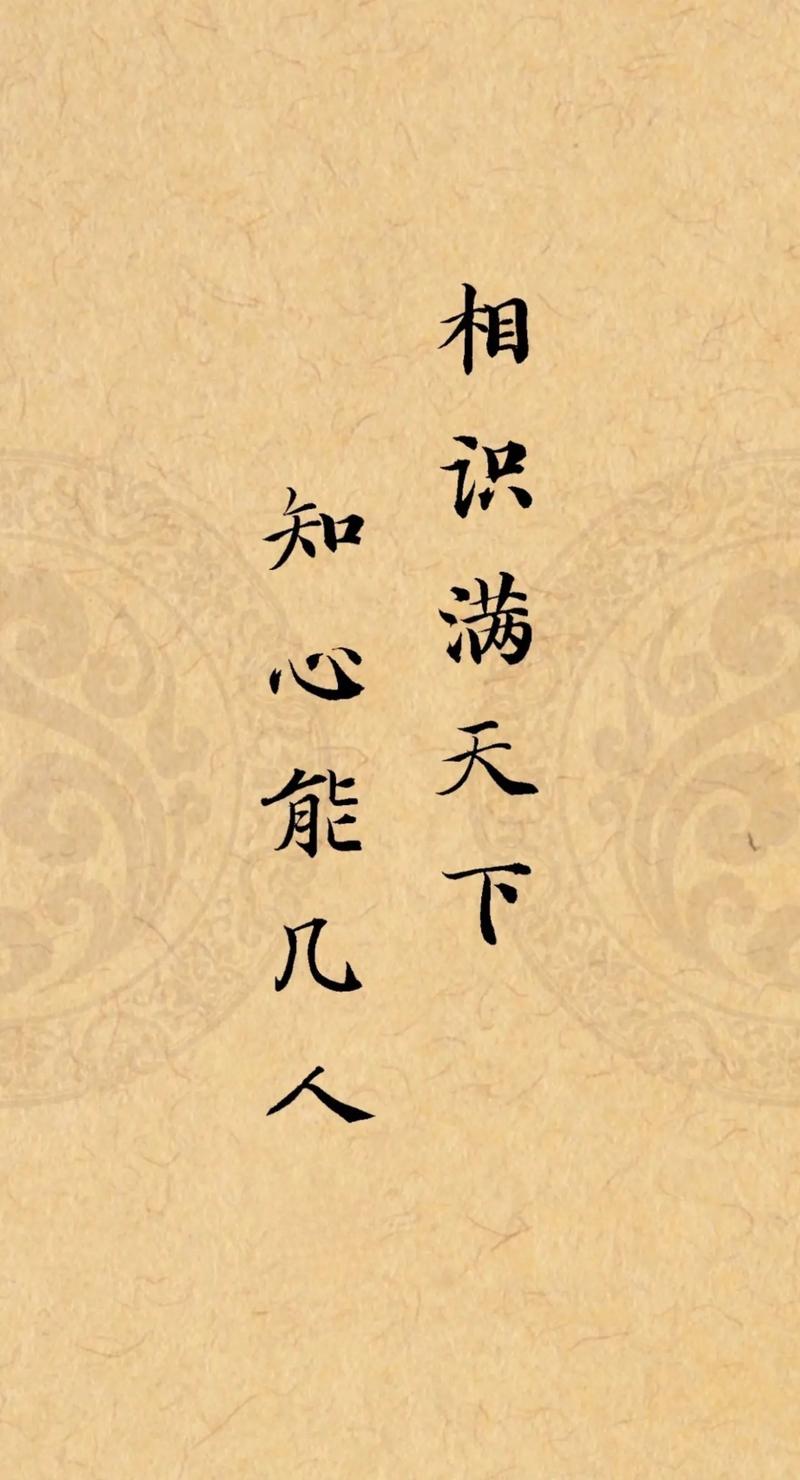 相识满天下
知心能几人